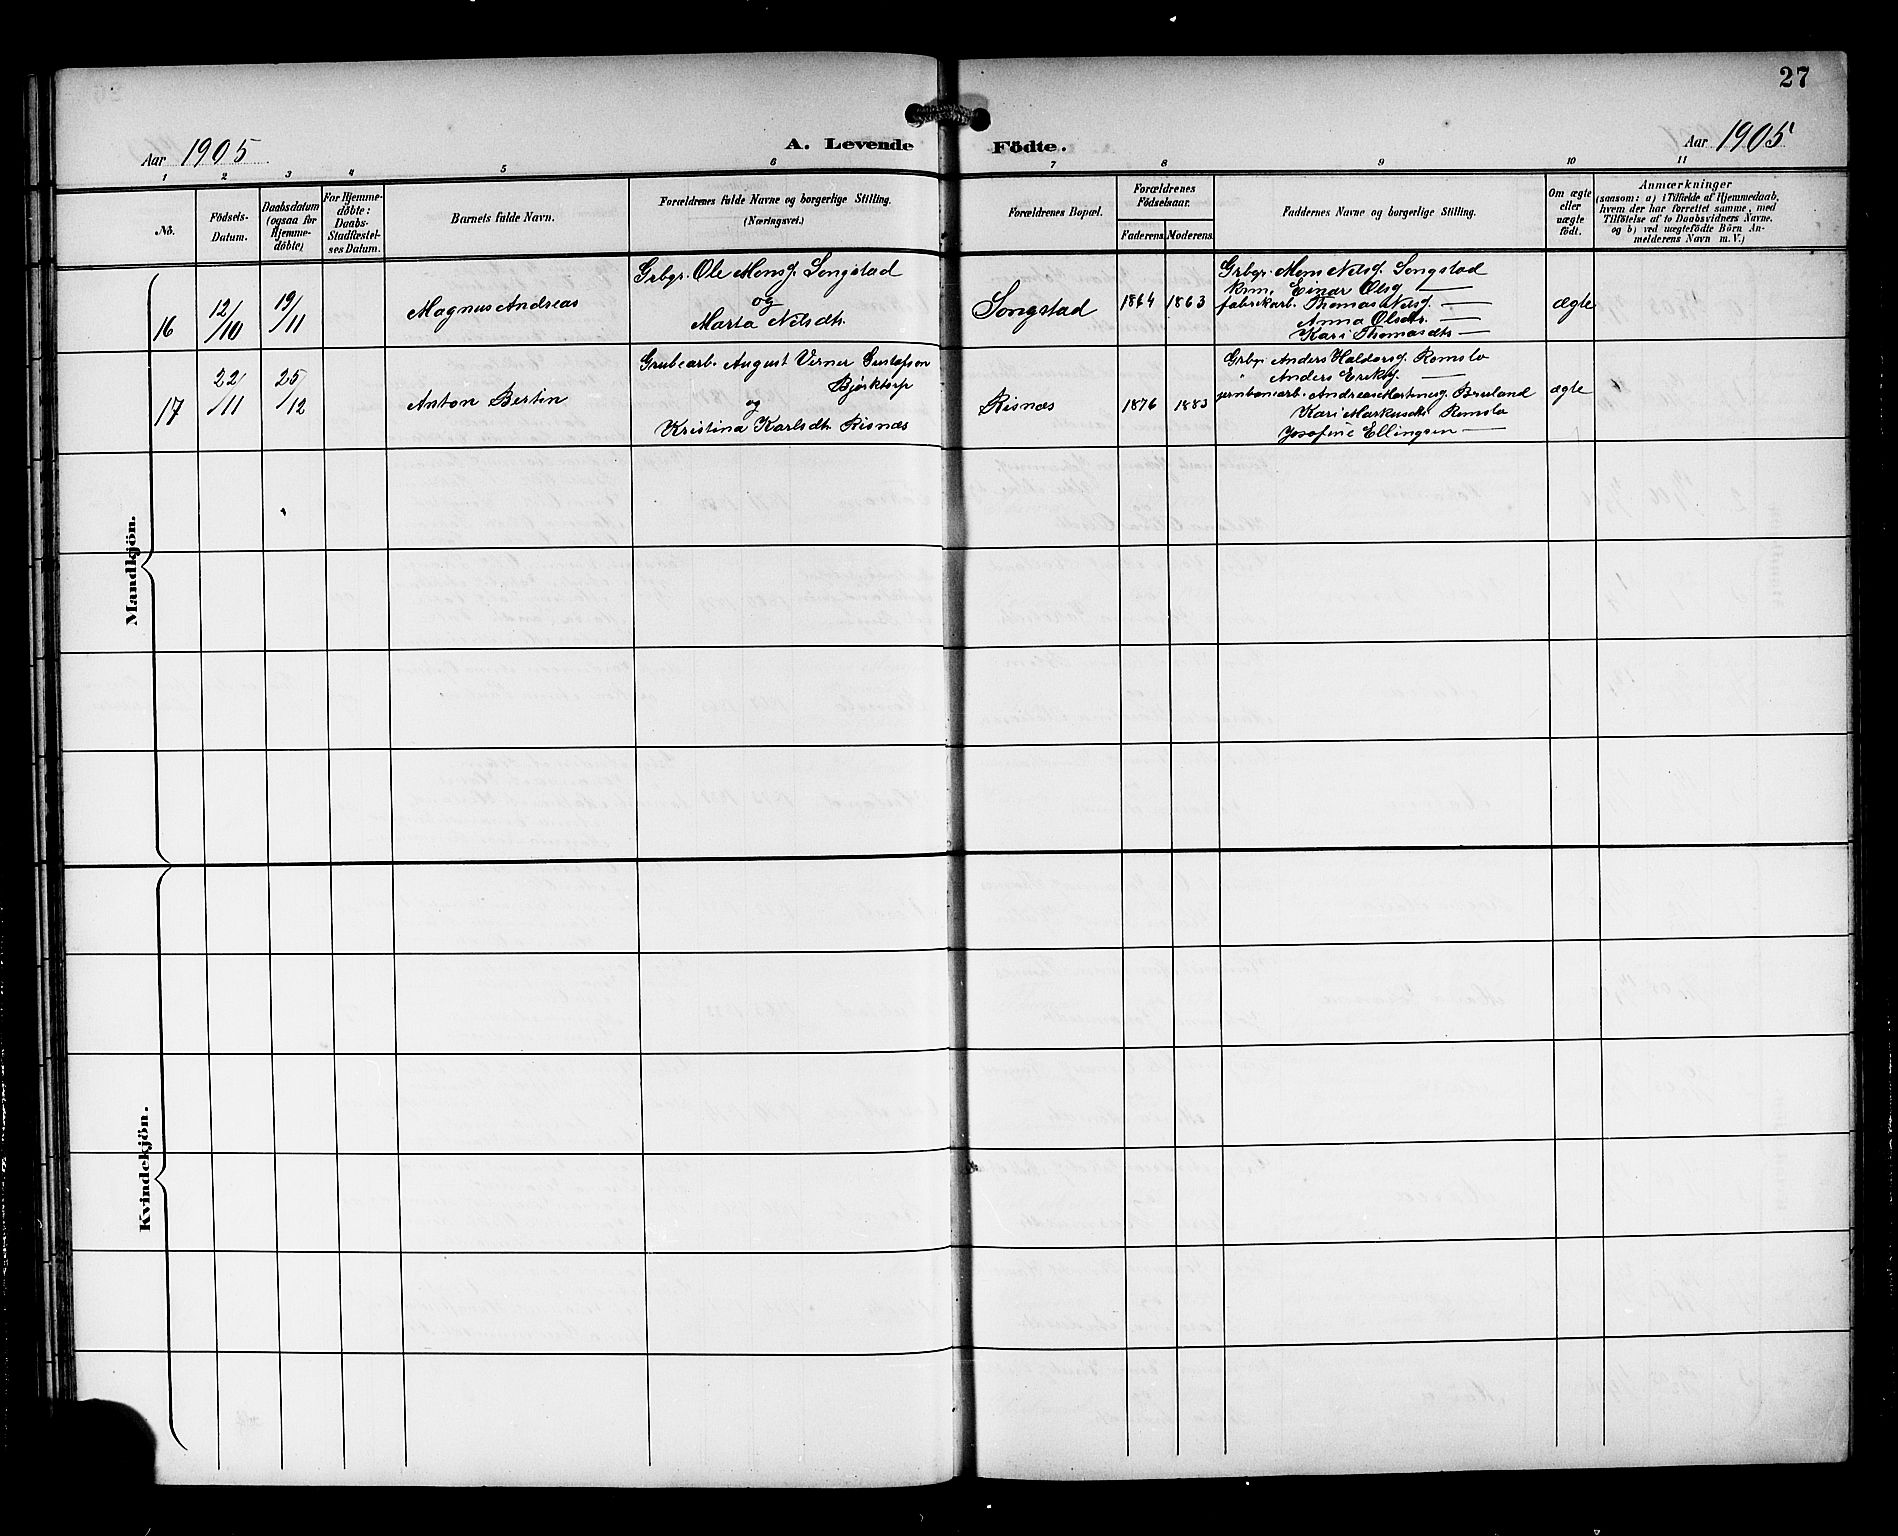 27
Aar 1905
A. Levende Födte.
Aar 1905
1 2 3 4 5 6 7 8 9 10 11
No.
Födsels-
Datum.
Daabsdatum
(ogsaa for
Hjemme-
döbte)
For Hjemme-
döbte:
Daabs-
Stadfæstel-
ses Datum.
Barnets fulde Navn.
Forældrenes fulde Navne og borgerlige Stilling.
(Næringsvei.)
Forældrenes Bopæl.
Forældrenes
Födselsaar.
Faderens. Moderens.
Faddernes Navne og borgerlige Stilling.
Om ægte
eller
uægte
födt.
Anmærkninger
(saasom: a) i Tilfælde af Hjemmedaab,
hvem der har forrettet samme, med
Tilföielse af to Daabsvidners Navne,
og b) ved uægtefödte Börn An-
melderens Navn m. V.)
Mandkjön.
16
12/10
19/11
Magnus Andreas
Grbgr. Ole Monsg. Songstad
og
Marta Nelsdtr.
Songstad
1864 1863
Grbgr. Mons Nelsg. Songstad
Einar Olsg —
fabrikarb. Thomas Nelsg. —
Anna Olsdtr. —
Kari Thomasdtr —
ægte
17
22/11
25/12
Anton Bertin
Grubearb. August Verner Gustafson
Bjørktorp
og
Kristina Karlsdtr. Risnæs
Risnæs
1876 1883
Grbgr. Anders Haldorsg. Romslo
Anders Eriksg. —
jernbanearb. Andreas Martinusg. Bruland
Kari Markusdtr. Romslo
Josefine Ellingsen —
ægte
Kvindekjön.